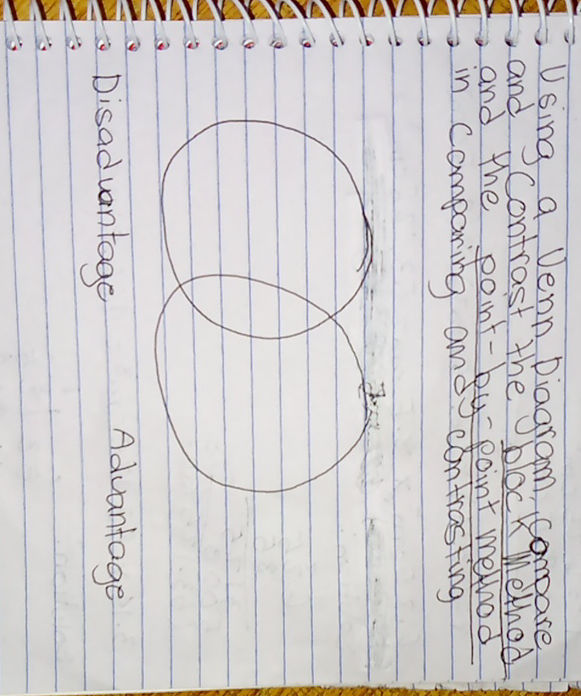 Using a Venn Diagram, Compare
and Contrast the block Method
and the point-by-point method
in Comparing and contrasting
Disadvantage Advantage